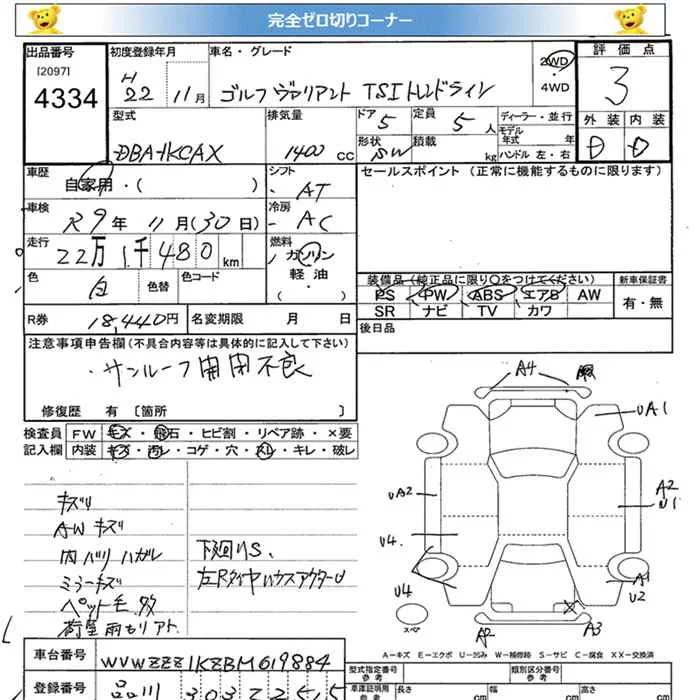 完全ゼロ切りコーナー
出品番号
[2097]
4334
初度登録年月
H
22 11月
車名・グレード
ゴルフ ヴァリアント TSI トレンドライン
2WD
・
4WD
評価点
3
型式
DBA-1KCAX
排気量
1400 cc
ドア
5
定員
5 人
形状
SW
積載
kg
ディーラー・並行
モデル年式 年
ハンドル 左・右
外装 内装
D D
車歴
自家用・( )
シフト
AT
セールスポイント (正常に機能するものに限ります)
車検
R9年 11月(30日)
冷房
AC
走行
22万1千480 km
燃料
ガソリン
軽油
(・)
色
白
色替
色コード
装備品(純正品に限り○をつけてください)
PS PW ABS エアB AW
SR ナビ TV カワ
新車保証書
有・無
R券 18,440円
名変期限 月 日
後日品
注意事項申告欄(不具合内容等は具体的に記入して下さい)
・サンルーフ開閉不良
修復歴 有 〔箇所 〕
検査員 FW キズ・飛石・ヒビ割・リペア跡・×要
記入欄 内装 キズ・汚レ・コゲ・穴・スレ・キレ・破レ
キズU
AWキズ
内バリハガレ
ミラーキズ
ペット毛多数
荷室雨もりアト.
下廻りS、
左Rタイヤハウスアウター凹
A4
UA1
UA2
A2
U1
U4.
U4
A1
U2
A2
A3
スペア
A-キズ E-エクボ U-凹み W-補修跡 S-サビ C-腐食 XX-交換済
車台番号
WVWZZZ1KZBM619884
登録番号
品川 303 ２２５１５
型式指定番号
参考
類別区分番号
参考
車庫証明用
参考
長さ cm
幅 cm
高さ cm